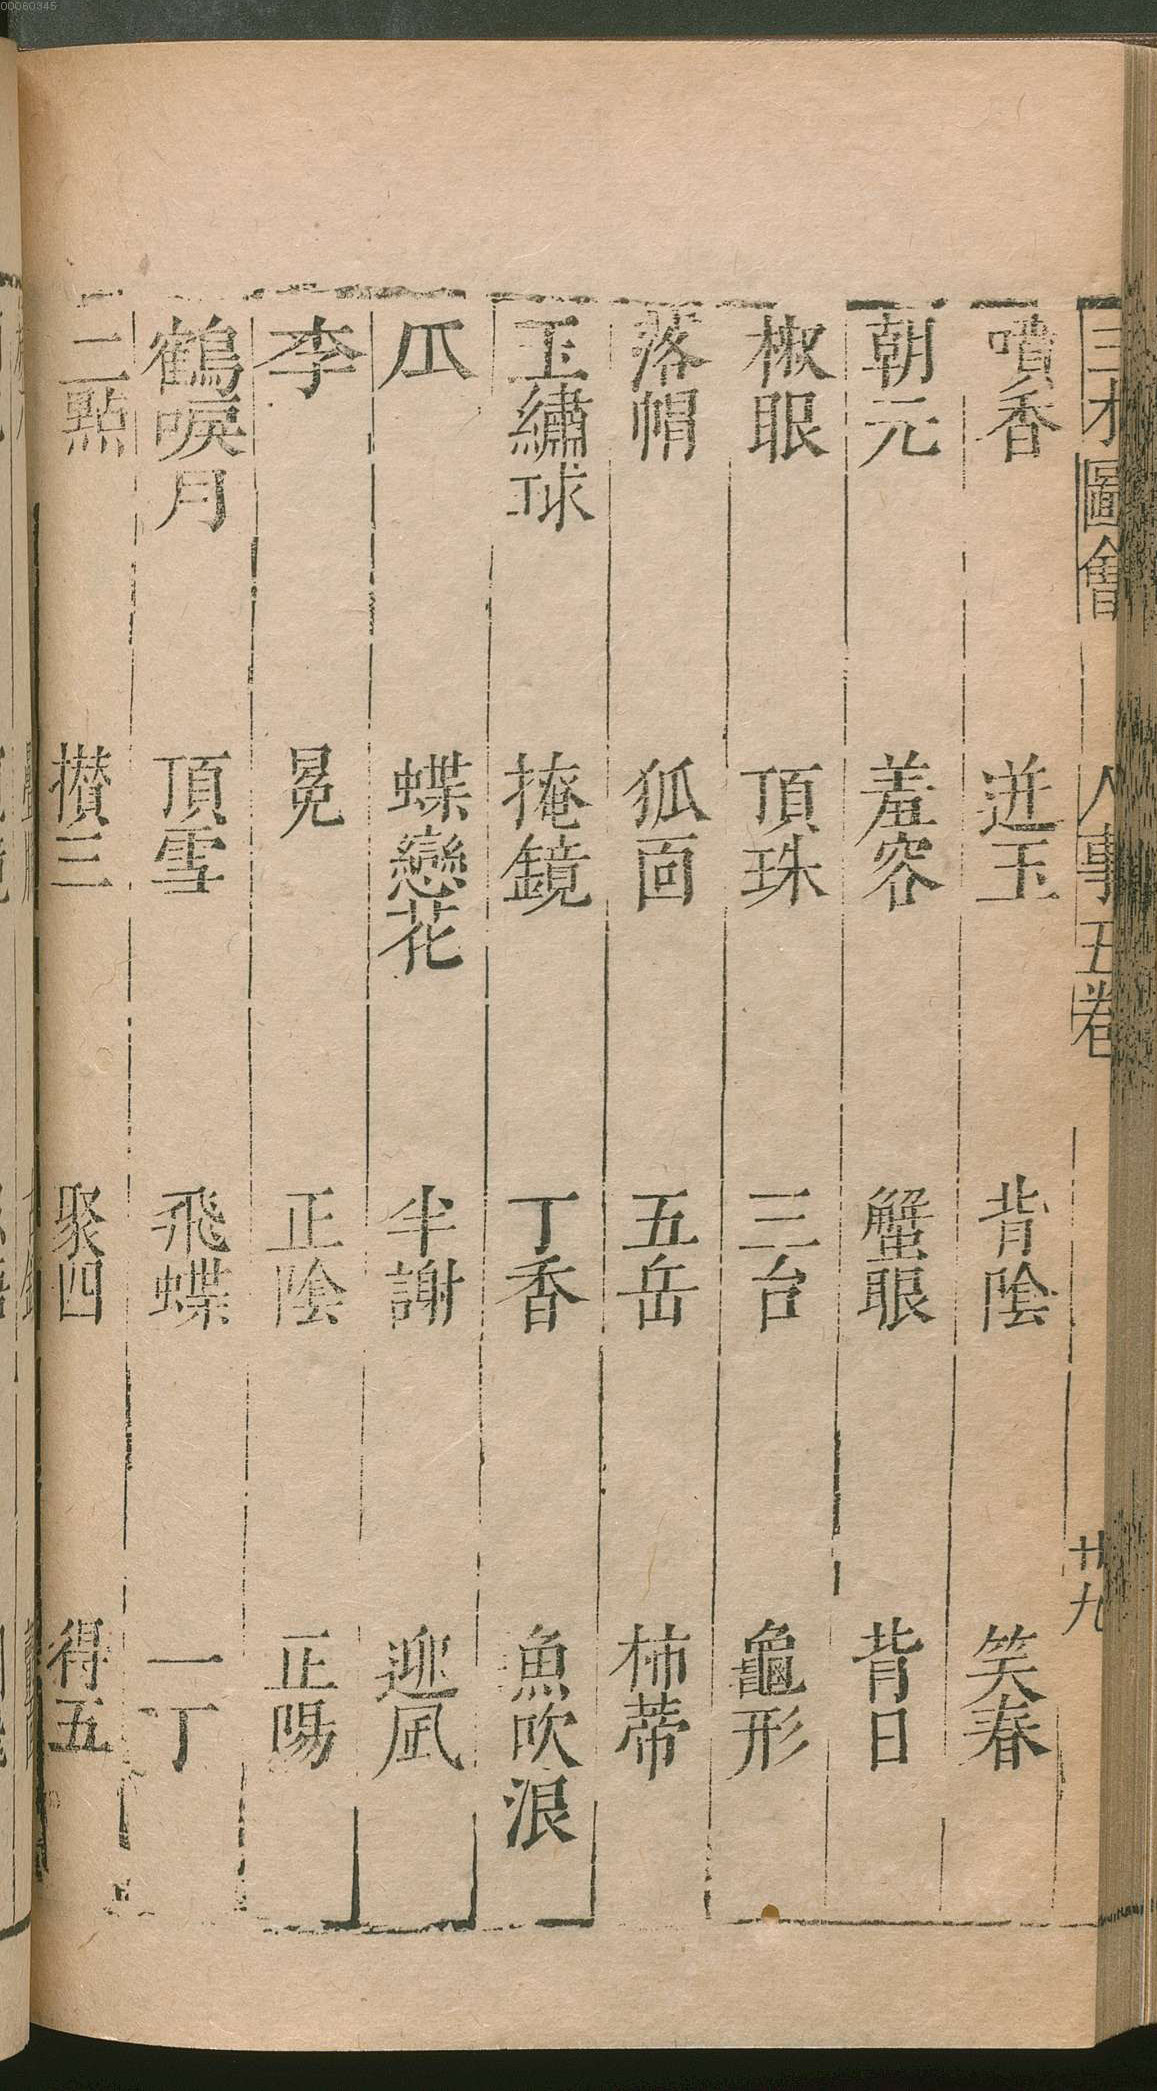 00060345
三才圖會 人事五卷 廿九
噴香 迸玉 背陰 笑春
朝元 羞容 蟹眼 背日
椒眼 頂珠 三台 龜形
落帽 狐面 五岳 柿蒂
玉繡球 掩鏡 丁香 魚吹浪
瓜 蝶戀花 半謝 迎風
李 冕 正陰 正陽
鶴唳月 頂雪 飛蝶 一丁
二點 攢三 聚四 得五